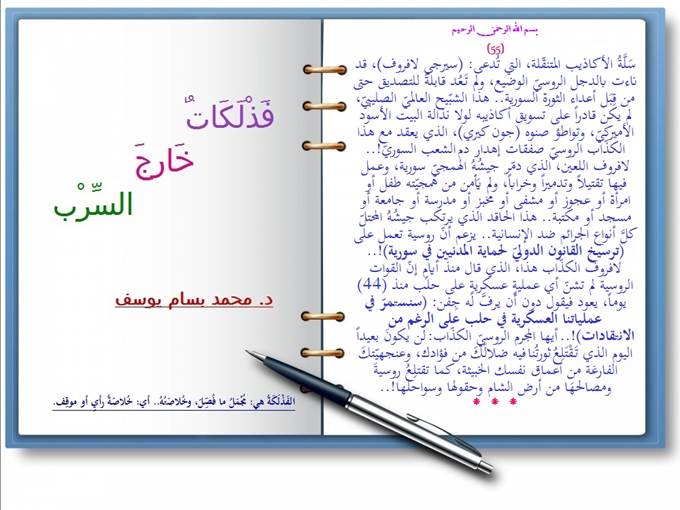 بسم الله الرحمن الرحيم
(55)
سَلَّةُ الأكاذيب المتنقّلة، التي تُدعى: (سيرجي لافروف)، قد
ناءت بالدجل الروسيّ الوضيع، ولم تَعُد قابلةً للتصديق حتى
من قِبَل أعداء الثورة السورية.. هذا الشبّيح العالميّ الصليبيّ،
لم يكن قادراً على تسويق أكاذيبه لولا نذالة البيت الأسود
الأميركيّ، وتواطؤ صنوه (جون كيري)، الذي يعقد مع هذا
الكذّاب الروسيّ صفقات إهدار دم الشعب السوريّ!..
لافروف اللعين، الذي دمّر جيشُهُ الهمجيّ سورية، وعمل
فيها تقتيلاً وتدميراً وخراباً، ولم يَأمن من همجيّته طفل أو
امرأة أو عجوز أو مشفى أو مخبز أو مدرسة أو جامعة أو
مسجد أو مكتبة.. هذا الحاقد الذي يرتكب جيشُهُ المحتلّ
كلَّ أنواع الجرائم ضد الإنسانية.. يزعم أنّ روسية تعمل على
(ترسيخ القانون الدوليّ لحماية المدنيين في سورية)!..
لافروف الكذّاب هذا، الذي قال منذ أيامٍ إنّ القوات
الروسية لم تشنّ أي عملية عسكريةٍ على حلب منذ (44)
يوماً، يعود فيقول دون أن يرفّ له جفن: (سنستمرّ في
عملياتنا العسكرية في حلب على الرغم من
الانتقادات)!.. أيها المجرم الروسيّ الكذّاب: لن يكونَ بعيداً
اليوم الذي تَقْتَلِعُ ثورتُنا فيه ضلالَكَ من فؤادك، وعنجهيّتَكَ
الفارغة من أعماق نفسك الخبيثة، كما تقتلِعُ روسيةَ
ومصالحَها من أرض الشام وحقولها وسواحلها!..
* * *
فَذْلَكَاتٌ
خَارِجَ
السِّرْب
د. محمد بسام يوسف
الفَذْلَكَةُ هي: مُجْمَلُ ما فُصِّلَ، وخُلاصَتُهُ.. أي: خُلاصَةُ رأيٍ أو موقِف.